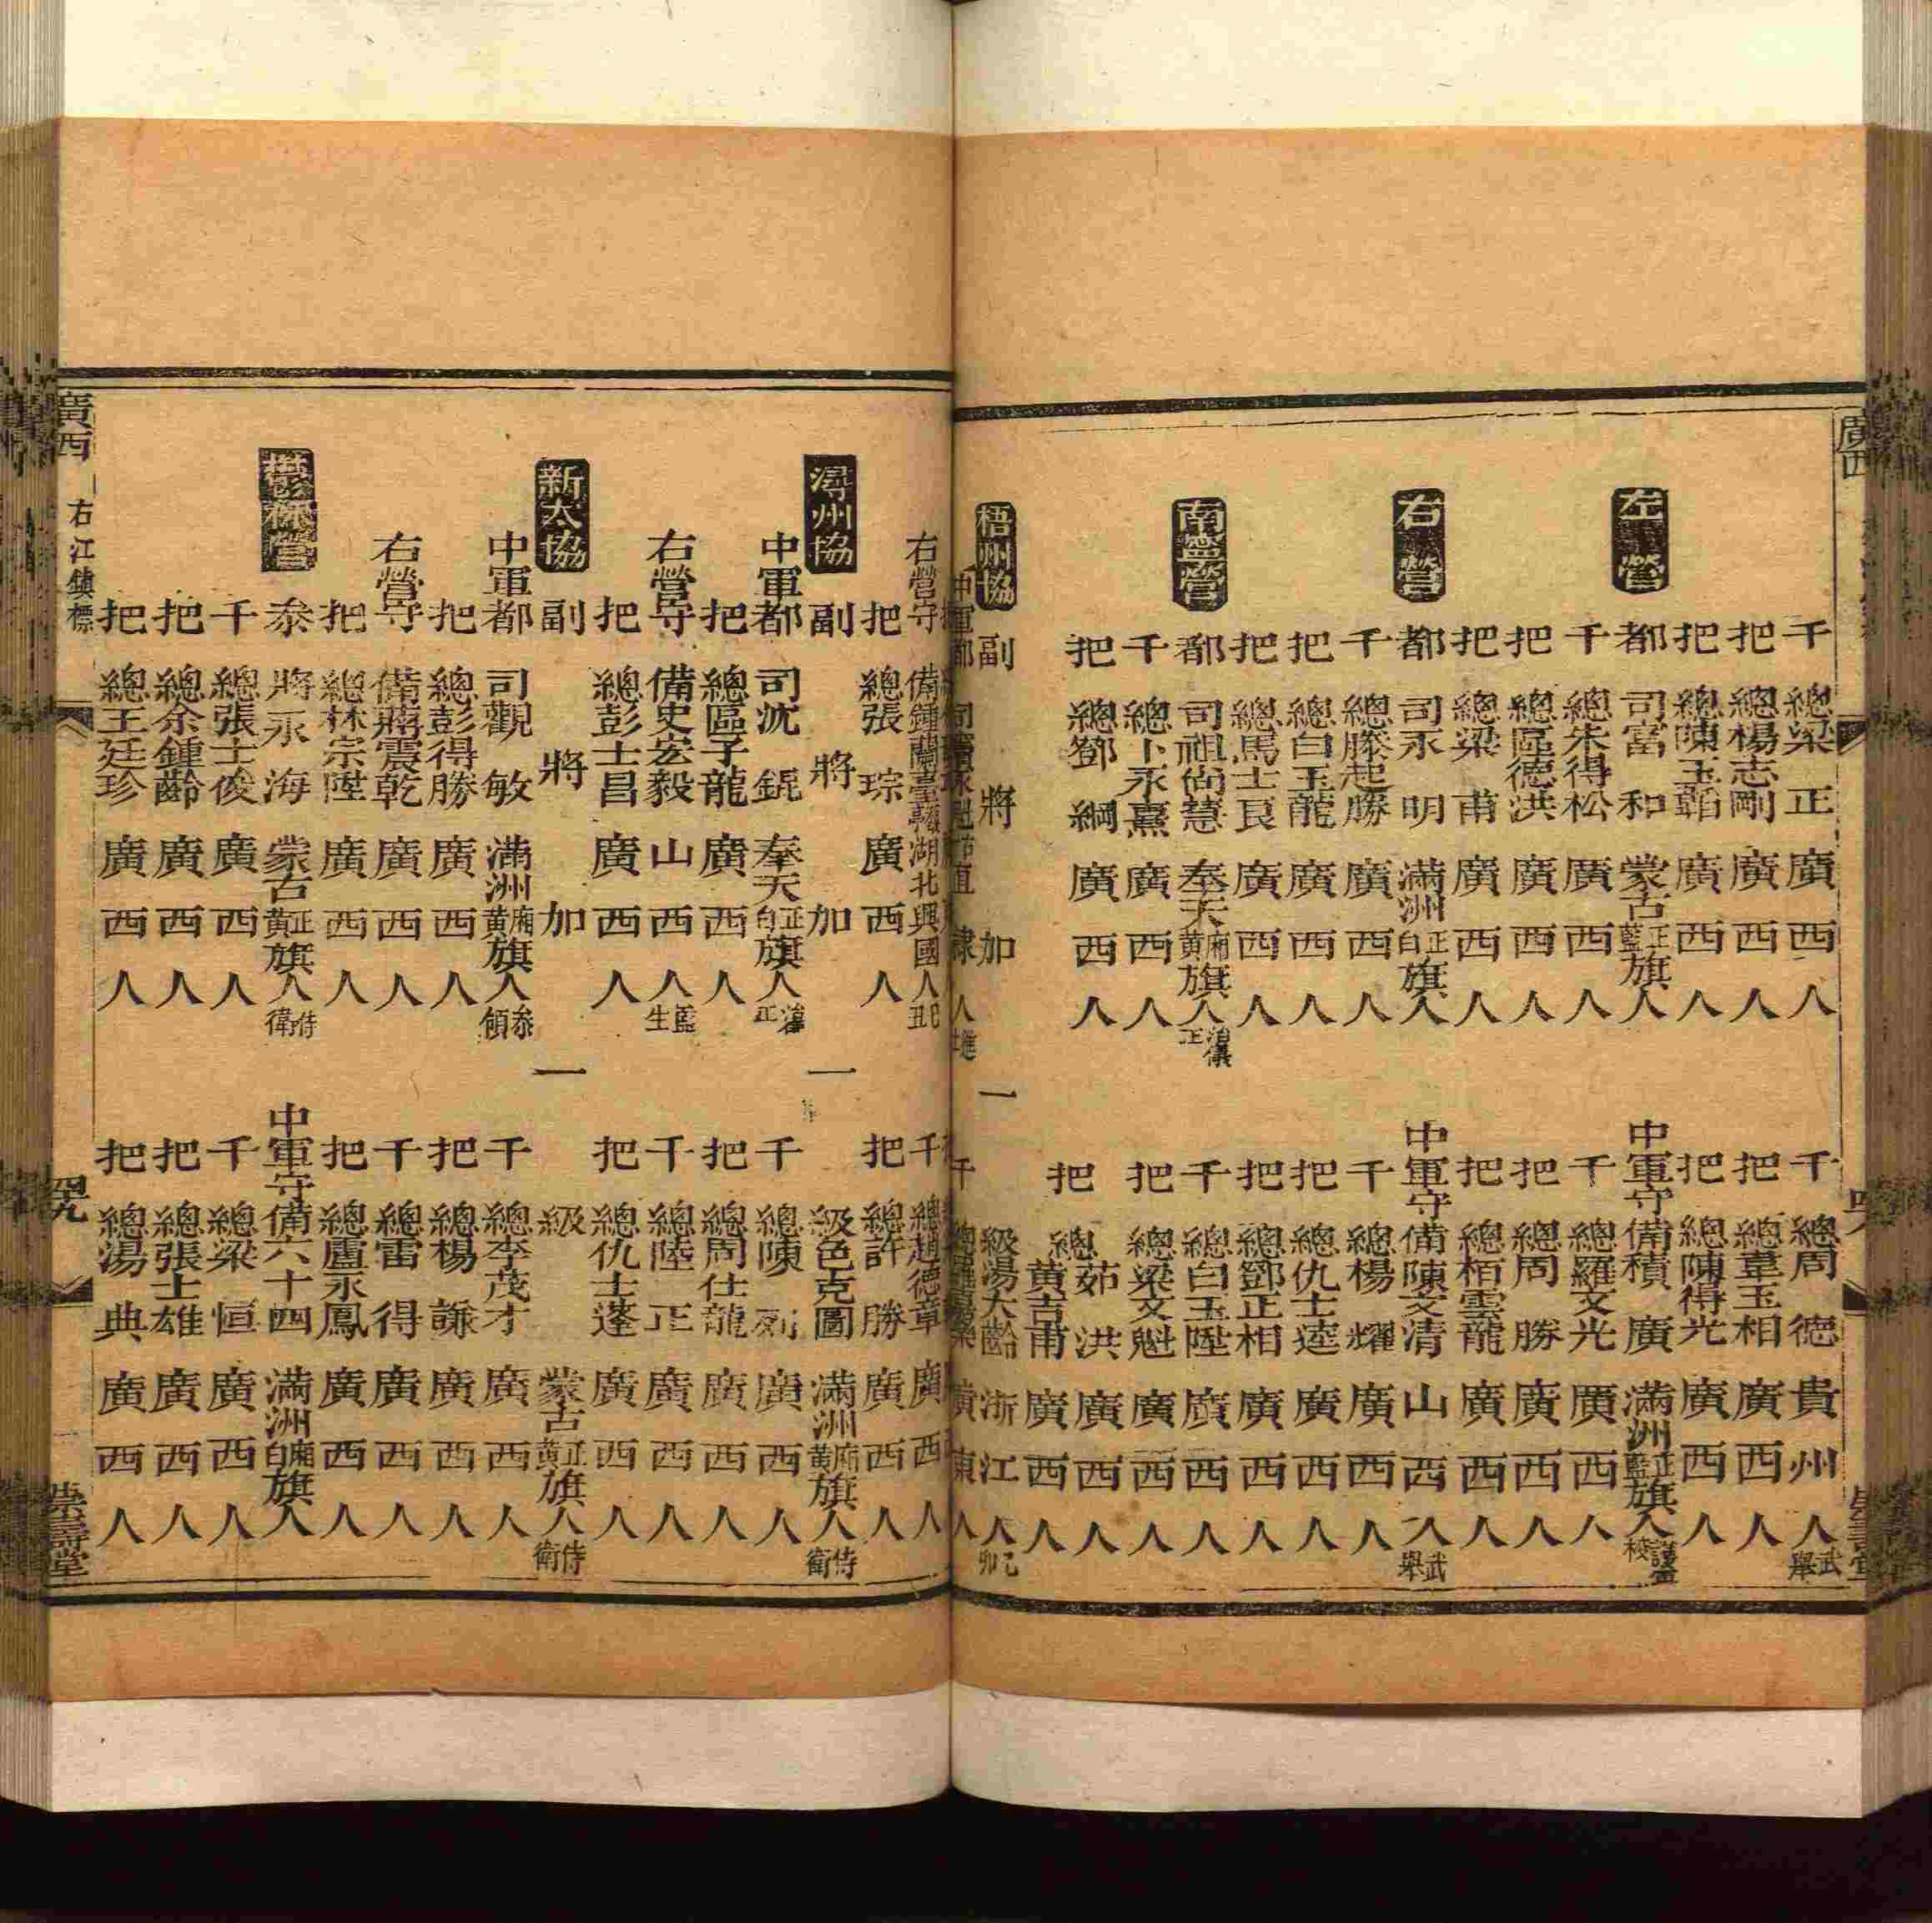 廣西
千總梁正廣西人
千總周德貴州人武舉
把總楊志剛廣西人
把總韋玉相廣西人
把總陳玉韜廣西人
把總陳得光廣西人
左營
都司富和蒙古正藍旗人
中軍守備積廣滿洲正藍旗人護軍校
千總朱得松廣西人
千總羅文光廣西人
把總區德洪廣西人
把總周勝廣西人
把總梁甫廣西人
把總栢雲龍廣西人
右營
都司永明滿洲正白旗人
中軍守備陳文清山西人武舉
千總滕起勝廣西人
千總楊耀廣西人
把總白玉龍廣西人
把總仇士逵廣西人
把總馬士良廣西人
把總鄧正相廣西人
南寧營
都司祖尚慧奉天廂黃旗人治儀正
千總白玉陞廣西人
千總卜永熹廣西人
把總梁文魁廣西人
把總鄧綱廣西人
把總茹洪廣西人
黃吉甫廣西人
梧州協
副將加一級湯大齡浙江人乙卯
中軍都司永魁直隸人進士
千總廣東人
右營守備鍾蘭臺湖北興國人己丑
千總趙德章廣西人
把總張琮廣西人
把總許勝廣西人
潯州協
副將加一級色克圖滿洲廂黃旗人侍衛
中軍都司沈錕奉天正白旗人治儀正
千總陳列廣西人
把總區子龍廣西人
把總周仕龍廣西人
右營守備史宏毅山西人監生
千總陸正廣西人
把總彭士昌廣西人
把總仇士蓬廣西人
新太協
副將加一級蒙古正黃旗人侍衛
中軍都司觀敏滿洲廂黃旗人叅領
千總李茂才廣西人
把總彭得勝廣西人
把總楊謙廣西人
右營守備蔣震乾廣西人
千總雷得廣西人
把總林宗陞廣西人
把總盧永鳳廣西人
欝林營
叅將永海蒙古正黃旗人侍衛
中軍守備六十四滿洲廂白旗人
千總張士俊廣西人
千總梁恒廣西人
把總余鍾齡廣西人
把總張士雄廣西人
把總王廷珍廣西人
把總湯典廣西人
廣西 右江鎮標 四九 崇壽堂